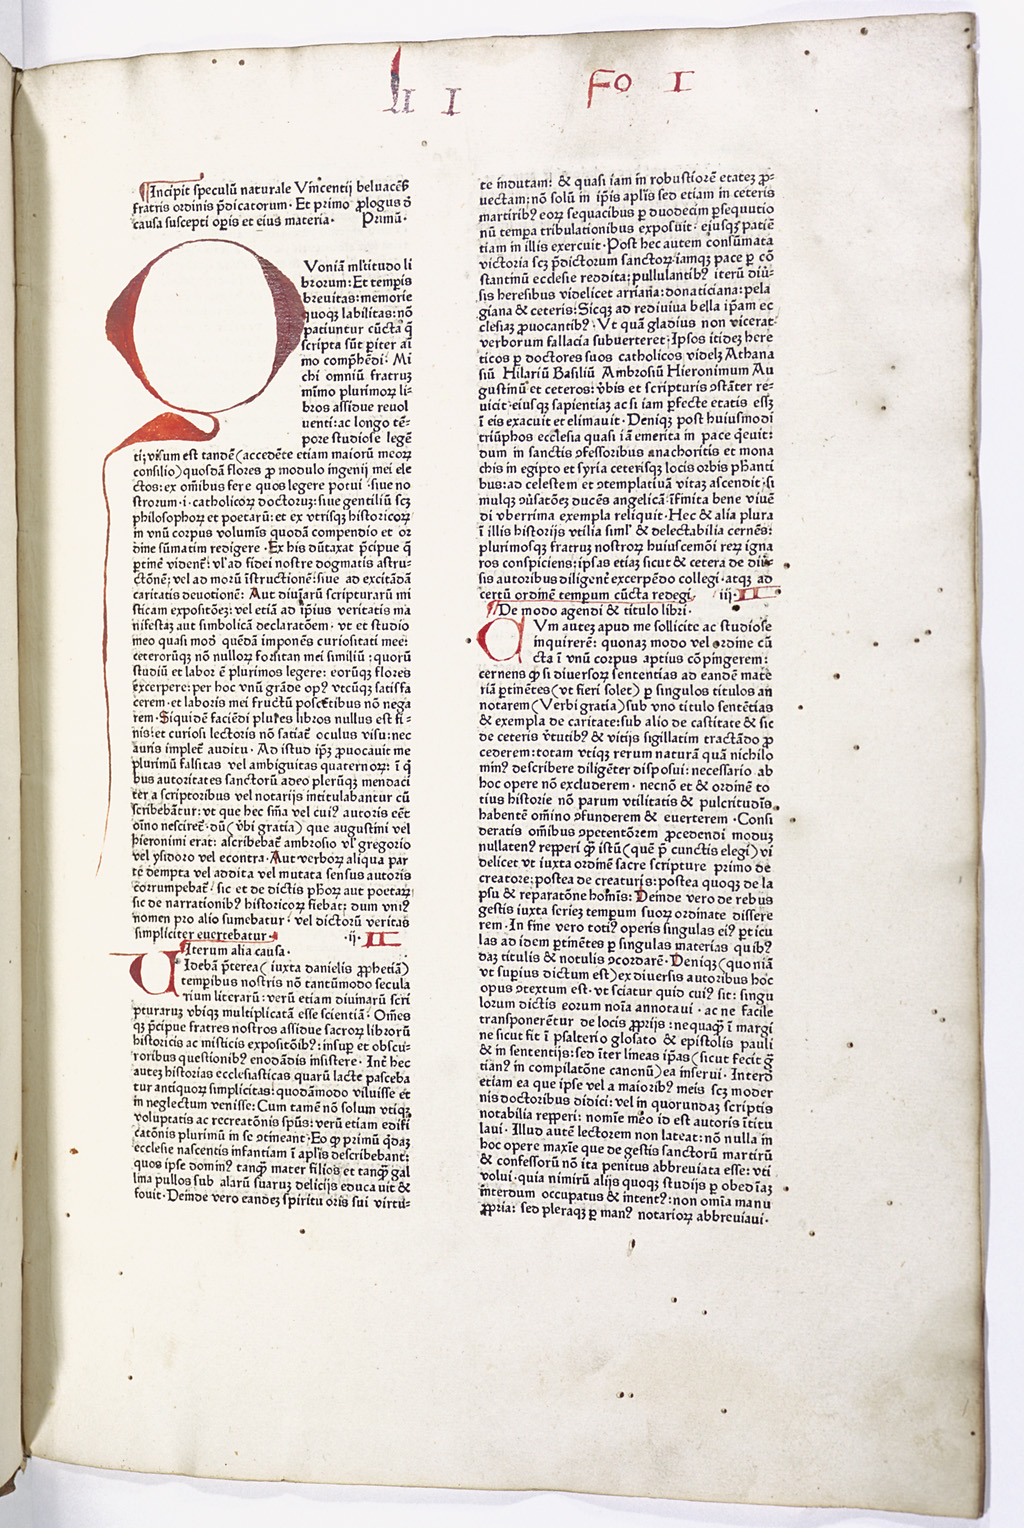 li I
Fo I
Incipit speculū naturale Vincentij beluaceñ
fratris ordinis p̄dicatorum · Et primo ꝓlogus ð
causa suscepti oꝑis et eius materia · Primū ·
Voniā ml̄titudo li
brorum: Et temꝑis
breuitas: memorie
quoqꝫ labilitas: nō
patiuntur cūcta q̄
scripta sūt ꝑiter ai
mo comp̄hēdi · Mi
chi omniū fratruꝫ
mīmo plurimoꝝ li-
bros assidue reuol
uenti: ac longo tē-
pore studiose legē
ti; visum est tandē (accedēte etiam maiorū meoꝝ
consilio) quosdā flores ꝓ modulo ingenij mei ele
ctos: ex om̄ibus fere quos legere potui · siue no
strorum · i · catholicoꝝ doctoruꝫ: siue gentiliū scꝫ
philosophoꝝ et poetarū: et ex vtrisqꝫ historicoꝝ
in vnū corpus volumis quodā compendio et or
dine sūmatim redigere · Ex his dūtaxat p̄cipue q̄
ptinē videnẽ: vl' ad fidei nostre dogmatis astru-
ctōnē; vel ad morū īstructionē: siue ad excitādā
caritatis deuotionē: Aut diuiarū scripturarū mi
sticam expositōeꝫ: vel etiā ad ip̄ius veritatis ma
nifestaꝫ aut simbolicā declaratōem · vt et studio
meo quasi mod̄ quēdā imponēs curiositati mee:
ceterorūqꝫ nō nulloꝝ forsitan mei similiū: quorū
studiū et labor ē plurimos legere: eorūqꝫ flores
excerpere: per hoc vnū grāde opꝰ vtcūqꝫ satisfa
cerem · et laboris mei fructū poscētibus nō nega
rem · Siquidē faciēdi plures libros nullus est fi-
nis: et curiosi lectoris nō satiat̄ oculus visu: nec
auris implet̄ auditu · Ad istud ip̄ꝫ ꝓuocauit me
plurimū falsitas vel ambiguitas quaternoꝝ: ī q̄
bus autoritates sanctorū adeo plerūqꝫ mendaci
ter a scriptoribus vel notarijs intitulabantur cū
scribebātur: vt que hec sn̄ia vel cuiꝰ autoris eēt
oīno nesciret̄ · dū (v̄bi gratia) que augustini vel
hieronimi erat: ascribebat̄ ambrosio vl' gregorio
vel ysidoro vel econtra · Aut verboꝝ aliqua par
te dempta vel addita vel mutata sensus autoris
corrumpebat̄ · sic et de dictis ph̄oꝝ aut poetaꝝ
sic de narrationibꝰ historicoꝝ fiebat; dum vniꝰ
nomen pro alio sumebatur · vel dictorū veritas
simpliciter euertebatur · · ij · II
Iterum alia causa ·
Idebā p̄terea (iuxta danielis ꝓphetiā)
temꝑibus nostris nō tantūmodo secula
rium literarū: verū etiam diuinarū scri
pturaruꝫ vbiqꝫ multiplicatā esse scientiā · Om̄es
qꝫ p̄cipue fratres nostros assidue sacroꝝ librorū
historicis ac misticis expositōibꝰ: insuꝑ et obscu-
rioribus questionibꝰ enodādis insistere · Int̄ hec
auteꝫ historias ecclesiasticas quarū lacte pasceba
tur antiquoꝝ simplicitas: quodāmodo viluisse et
in neglectum venisse: Cum tamē nō solum vtiqꝫ
voluptatis ac recreatōnis spūs: verū etiam edifi
catōnis plurimū in se ꝯtineant · Eo ꝙ primū q̄daꝫ
ecclesie nascentis infantiam ī aplīs describebant:
quos ipse dominꝰ tanqꝫ mater filios et tanqꝫ gal
lina pullos sub alarū suaruꝫ delicijs educauit &
fouit · Deinde vero tandeꝫ spiritu oris sui virtu-
te indutam: & quasi iam in robustiorē etateꝫ ꝓ-
uectam; nō solū in ip̄is aplīs sed etiam in ceteris
martiribꝰ eoꝝ sequacibus ꝑ duodecim ꝑsequutio
nū tempa tribulationibus exposuit · eiusqꝫ patiē
tiam in illis exercuit · Post hec autem consūmata
victoria scꝫ p̄dictorum sanctoꝝ iamqꝫ pace ꝑ cō
stantinū ecclesie reddita; pullulantibꝰ iterū diū-
sis heresibus videlicet arriana: donaticiana: pela
giana & ceteris: Sicqꝫ ad rediuiua bella ip̄am ec
clesiaꝫ ꝓuocantibꝰ: Vt quā gladius non vicerat
verborum fallacia subuerteret; Ipsos itideꝫ here
ticos ꝑ doctores suos catholicos videlꝫ Athana
siū Hilariū Basiliū Ambrosiū Hieronimum Au
gustinū et ceteros: v̄bis et scripturis ꝯstāter re-
uicit · eiusqꝫ sapientiaꝫ ac si iam ꝑfecte etatis essꝫ
ī eis exacuit et elimauit · Deniqꝫ post huiusmodi
triūphos ecclesia quasi iā emerita in pace q̄euit:
dum in sanctis ꝯfessoribus anachoritis et mona
chis in egipto et syria ceterisqꝫ locis orbis ꝑhanti
bus: ad celestem et ꝯtemplatiuā vitaꝫ ascendit; si
mulqꝫ ꝯūsatōeꝫ ducēs angelicā: īfinita bene viuē
di vberrima exempla reliquit · Hec & alia plura
ī illis historijs vtilia siml' & delectabilia cernēs:
plurimosqꝫ fratruꝫ nostroꝝ huiuscemōi reꝝ igna
ros conspiciens: ipsas etiaꝫ sicut & cetera de diū-
sis autoribus diligent̄ excerpēdo collegi · atqꝫ ad
certū ordinē tempum cūcta redegi · iij · III
De modo agendi & titulo libri ·
Vm auteꝫ apud me sollicite ac studiose
inquirerē: quonaꝫ modo vel ordine cū
cta ī vnū corpus aptius cōpingerem:
cernens ꝙ si diuersoꝝ sententias ad eandē mate
riā ꝑtinētes (vt fieri solet) ꝑ singulos titulos an
notarem (Verbi gratia) sub vno titulo sentētias
& exempla de caritate: sub alio de castitate & sic
de ceteris v̄tutibꝰ & vitijs sigillatim tractādo ꝓ
cederem: totam vtiqꝫ rerum naturā quā nichilo
minꝰ describere diligēter disposui: necessario ab
hoc opere nō excluderem · necnō et & ordinē to
tius historie nō parum vtilitatis & pulcritudis
habentē om̄ino ꝯfunderem & euerterem · Consi
deratis om̄ibus ꝯpetentōrem ꝓcedendi moduꝫ
nullatenꝰ reꝑperi q̄ istū (quē p̄ cunctis elegi) vi
delicet vt iuxta ordinē sacre scripture primo de
creatore; postea de creaturis: postea quoqꝫ de la
psu & reparatōne homīs: Deinde vero de rebus
gestis iuxta serieꝫ tempum suoꝝ ordinate dissere
rem · In fine vero totiꝰ operis singulas eiꝰ ꝑticu
las ad idem ꝑtinētes ꝑ singulas materias quibꝰ
daꝫ titulis & notulis ꝯcordarē · Deniqꝫ (quoniā
vt supius dictum est) ex diuersis autoribus hoc
opus ꝯtextum est · vt sciatur quid cuiꝰ sit: singu
lorum dictis eorum noīa annotaui · ac ne facile
transponerētur de locis ꝓprijs: nequaqꝫ ī margi
ne sicut fit ī psalterio glosato & epistolis pauli
& in sententijs: sed īter lineas ip̄as (sicut fecit g̅
tianꝰ in compilatōne canonū) ea inserui · Interd̄
etiam ea que ipse vel a maioribꝰ meis scꝫ moder
nis doctoribus didici: vel in quorundaꝫ scriptis
notabilia reꝑperi: nomīe meo id est autoris ītitu
laui · Illud autē lectorem non lateat: nō nulla in
hoc opere maxīe que de gestis sanctorū martirū
& confessorū nō ita penitus abbreuiata esse: vti
volui · quia nimirū alijs quoqꝫ studijs ꝑ obedīaꝫ
interdum occupatus & intentꝰ: non omīa manu
ꝓpria: sed pleraqꝫ ꝑ manꝰ notarioꝝ abbreuiaui ·